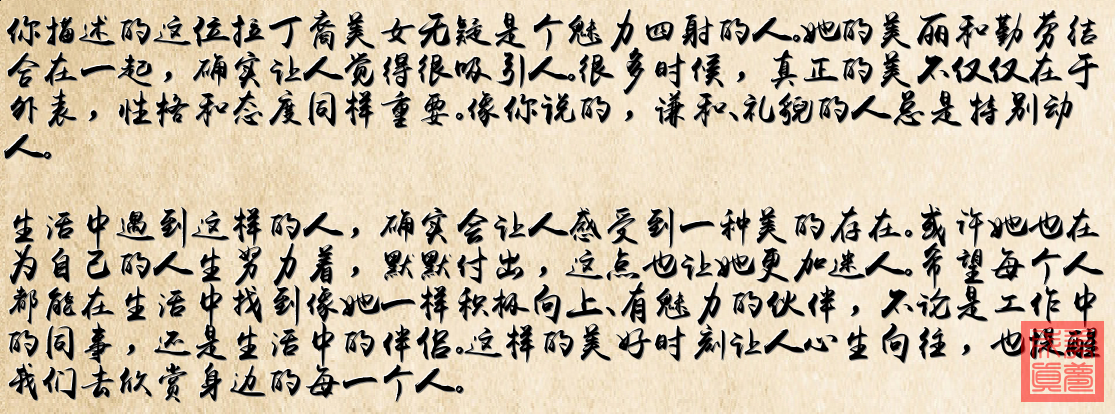 你描述的这位拉丁裔美女无疑是个魅力四射的人。她的美丽和勤劳结
合在一起，确实让人觉得很吸引人。很多时候，真正的美不仅仅在于
外表，性格和态度同样重要。像你说的，谦和、礼貌的人总是特别动
人。
生活中遇到这样的人，确实会让人感受到一种美的存在。或许她也在
为自己的人生努力着，默默付出，这点也让她更加迷人。希望每个人
都能在生活中找到像她一样积极向上、有魅力的伙伴，不论是工作中
的同事，还是生活中的伴侣。这样的美好时刻让人心生向往，也提醒
我们去欣赏身边的每一个人。